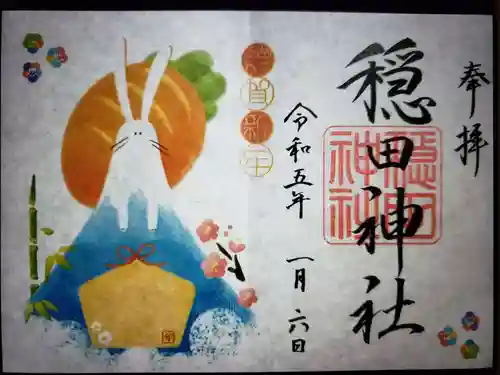 奉拝
穏田神社
穏田
神社
令和五年 一月六日
謹賀新年